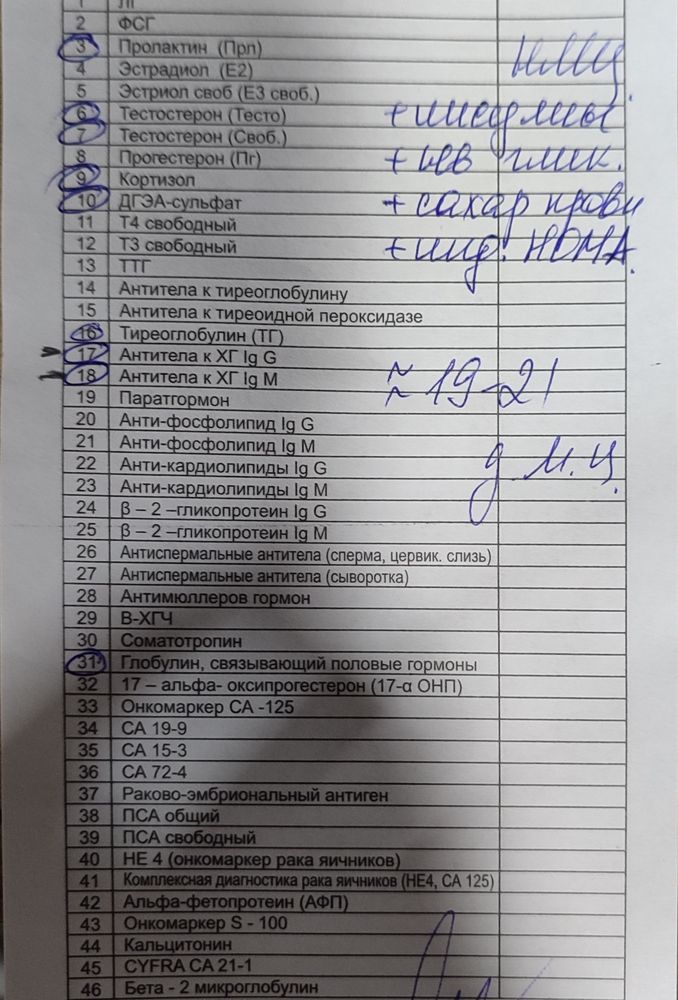 1 ЛГ
2 ФСГ
3 Пролактин (Прл) НМЦ
4 Эстрадиол (Е2)
5 Эстриол своб (Е3 своб.)
6 Тестостерон (Тесто) + инсулины
7 Тестостерон (Своб.)
8 Прогестерон (Пг) + нв глик.
9 Кортизол
10 ДГЭА-сульфат + сахар крови
11 Т4 свободный
12 Т3 свободный + инд. НОМА.
13 ТТГ
14 Антитела к тиреоглобулину
15 Антитела к тиреоидной пероксидазе
16 Тиреоглобулин (ТГ)
17 Антитела к ХГ Ig G
18 Антитела к ХГ Ig M ≈ 19-21
19 Паратгормон
20 Анти-фосфолипид Ig G
21 Анти-фосфолипид Ig M
22 Анти-кардиолипиды Ig G д м.ц.
23 Анти-кардиолипиды Ig M
24 β – 2 –гликопротеин Ig G
25 β – 2 –гликопротеин Ig M
26 Антиспермальные антитела (сперма, цервик. слизь)
27 Антиспермальные антитела (сыворотка)
28 Антимюллеров гормон
29 В-ХГЧ
30 Соматотропин
31 Глобулин, связывающий половые гормоны
32 17 – альфа- оксипрогестерон (17-α ОНП)
33 Онкомаркер СА -125
34 СА 19-9
35 СА 15-3
36 СА 72-4
37 Раково-эмбриональный антиген
38 ПСА общий
39 ПСА свободный
40 НЕ 4 (онкомаркер рака яичников)
41 Комплексная диагностика рака яичников (НЕ4, СА 125)
42 Альфа-фетопротеин (АФП)
43 Онкомаркер S - 100
44 Кальцитонин
45 CYFRA CA 21-1
46 Бета - 2 микроглобулин